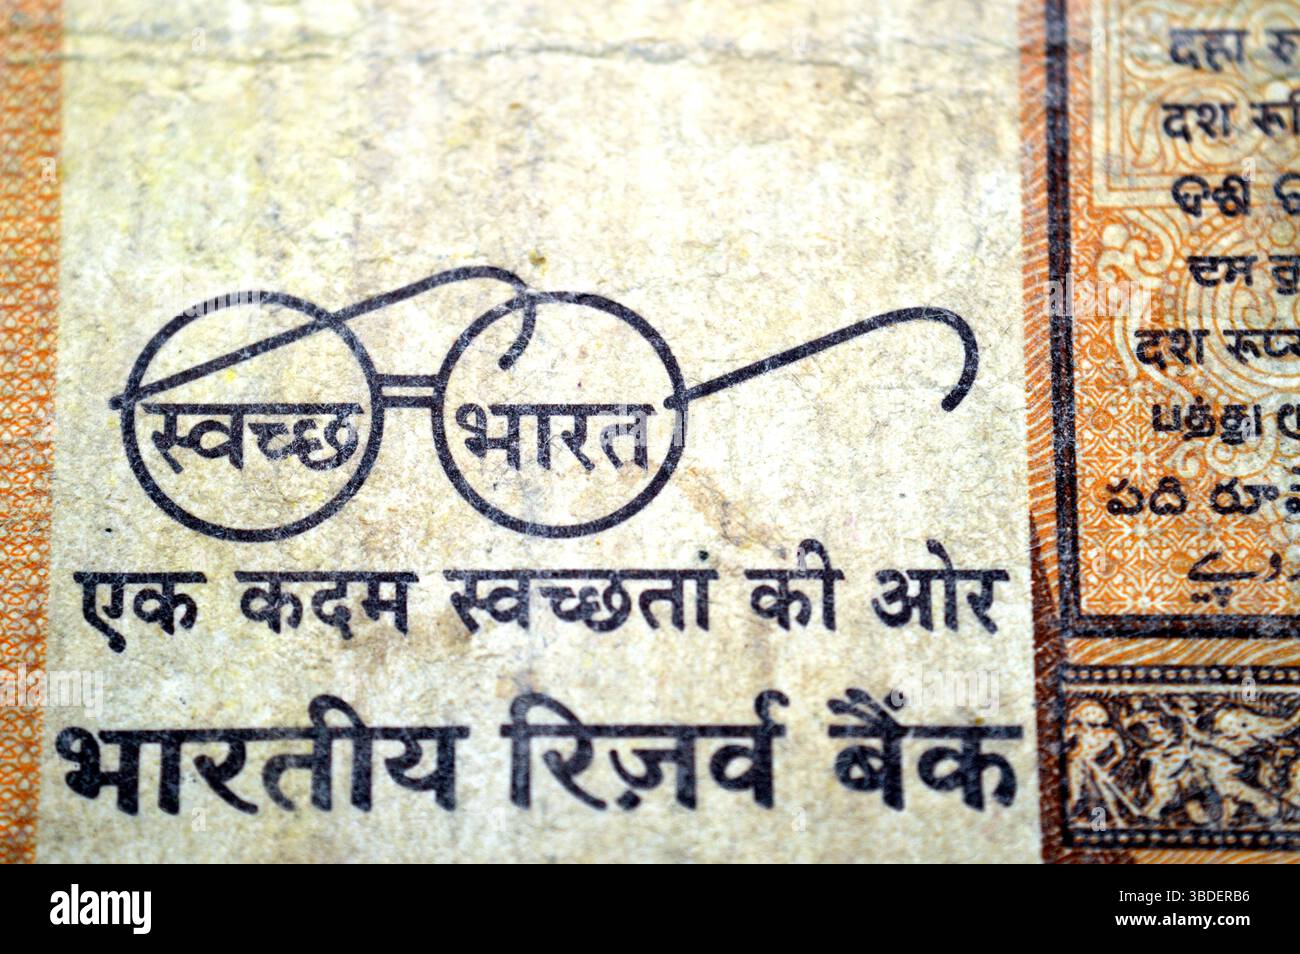 स्वच्छ भारत
एक कदम स्वच्छता की ओर
भारतीय रिज़र्व बैंक
दहा
दश
ଦଶ
ਦਸ
दश
பத்து
పది
alamy
Image ID: 3BDERB6
www.alamy.com